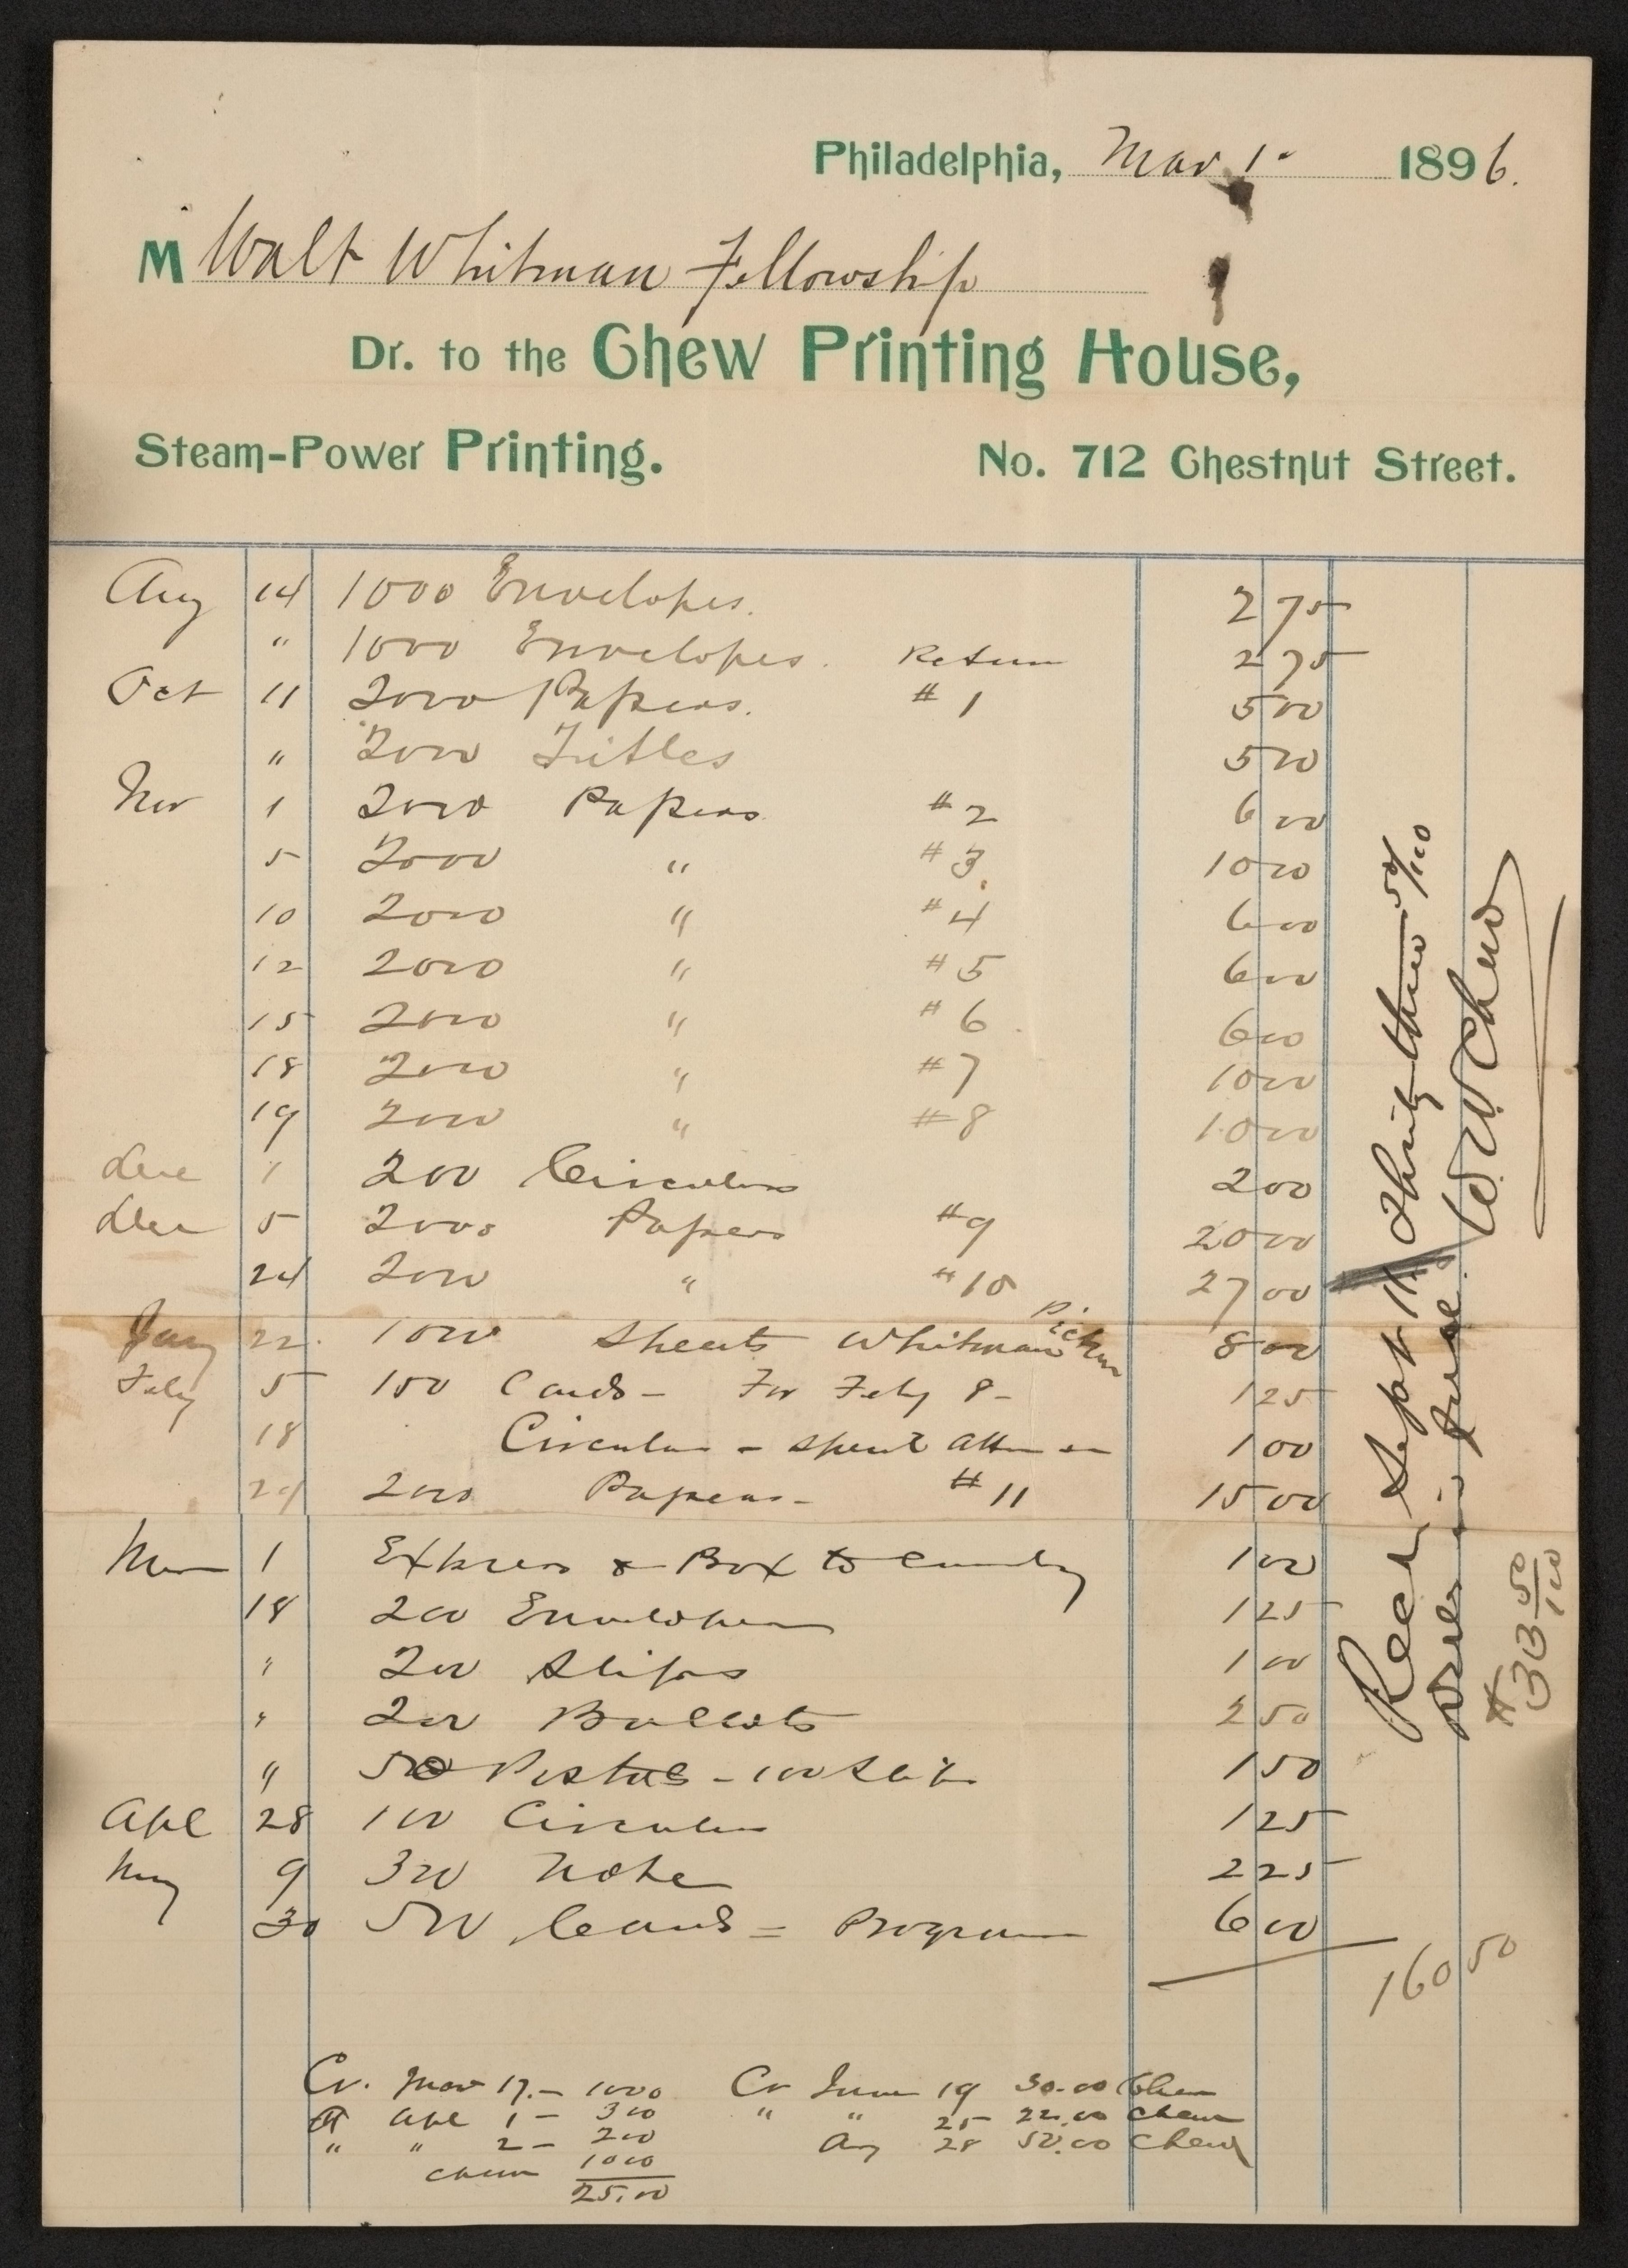 Philadelphia, Mar 1" 1896.
M Walt Whitman Fellowship
Dr. to the Chew Printing House,
Steam-Power Printing. No. 712 Chestnut Street.
Aug 14 1000 Envelopes. 2 75
" 1000 Envelopes. Return 2 75
Oct 11 2000 Papers. # 1 5 00
" 2000 Titles 5 00
Nov 1 2000 Papers # 2 6 00
5 2000 " # 3 10 00
10 2000 " # 4 6 00
12 2000 " # 5 6 00
15 2000 " # 6 6 00
18 2000 " # 7 10 00
19 2000 " # 8 10 00
Dec 1 200 Circulars 2 00
Dec 5 2000 Papers # 9 20 00
24 2000 " # 10 27 00
Jany 22 1000 Sheets Whitman 8 00
Feby 5 100 Cards - For Feby 8 - 1 25
18 Circular - 1 00
2000 Papers - # 11 15 00
Mar 1 Express & Box to Camden 1 00
18 200 Envelopes 1 25
" 200 Slips 1 00
" 200 Ballots 2 50
" 50 Postals - 100 Slips 1 50
Apl 28 100 Circulars 1 25
May 9 300 Note 2 25
30 500 Cards = Program 6 00
160 50
Cr. Mar 17. - 10 00 Cr June 19 30.00 Chew
Apl 1 - 3 00 " " 25 22.00 Chew
" " 2 - 2 00 Aug 28 50.00 Chew
Chew 10 00
25.00
Recd Sept 11 Thirty three 50/100
Dols in full. W W Chew
$33 50/100